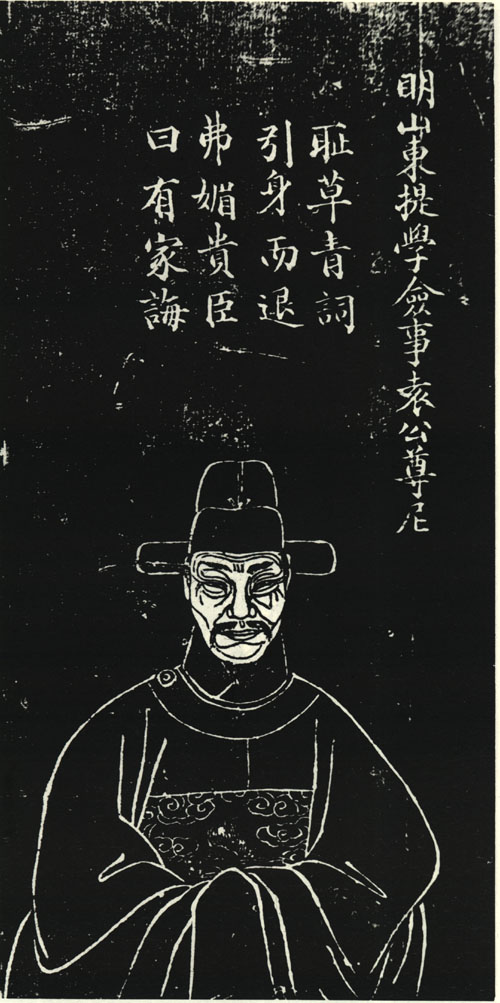 明山東提學僉事袁公尊尼
恥草青詞
引身而退
弗媚貴臣
曰有家誨